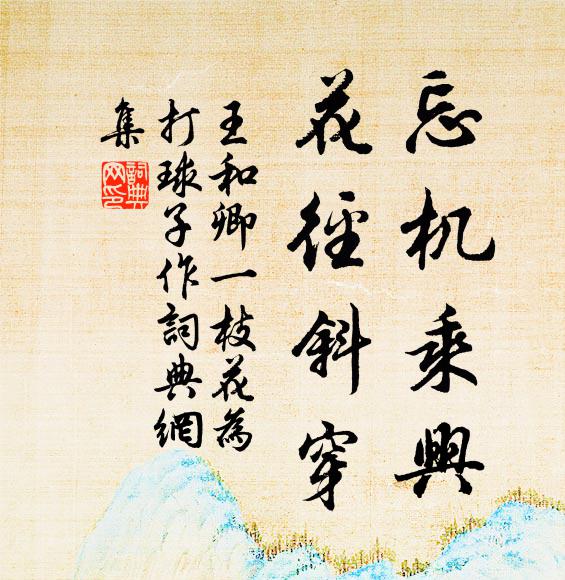 忘机乘興
花徑斜穿
王和卿一枝花為
打球子作詞典網
集
詞典
网印